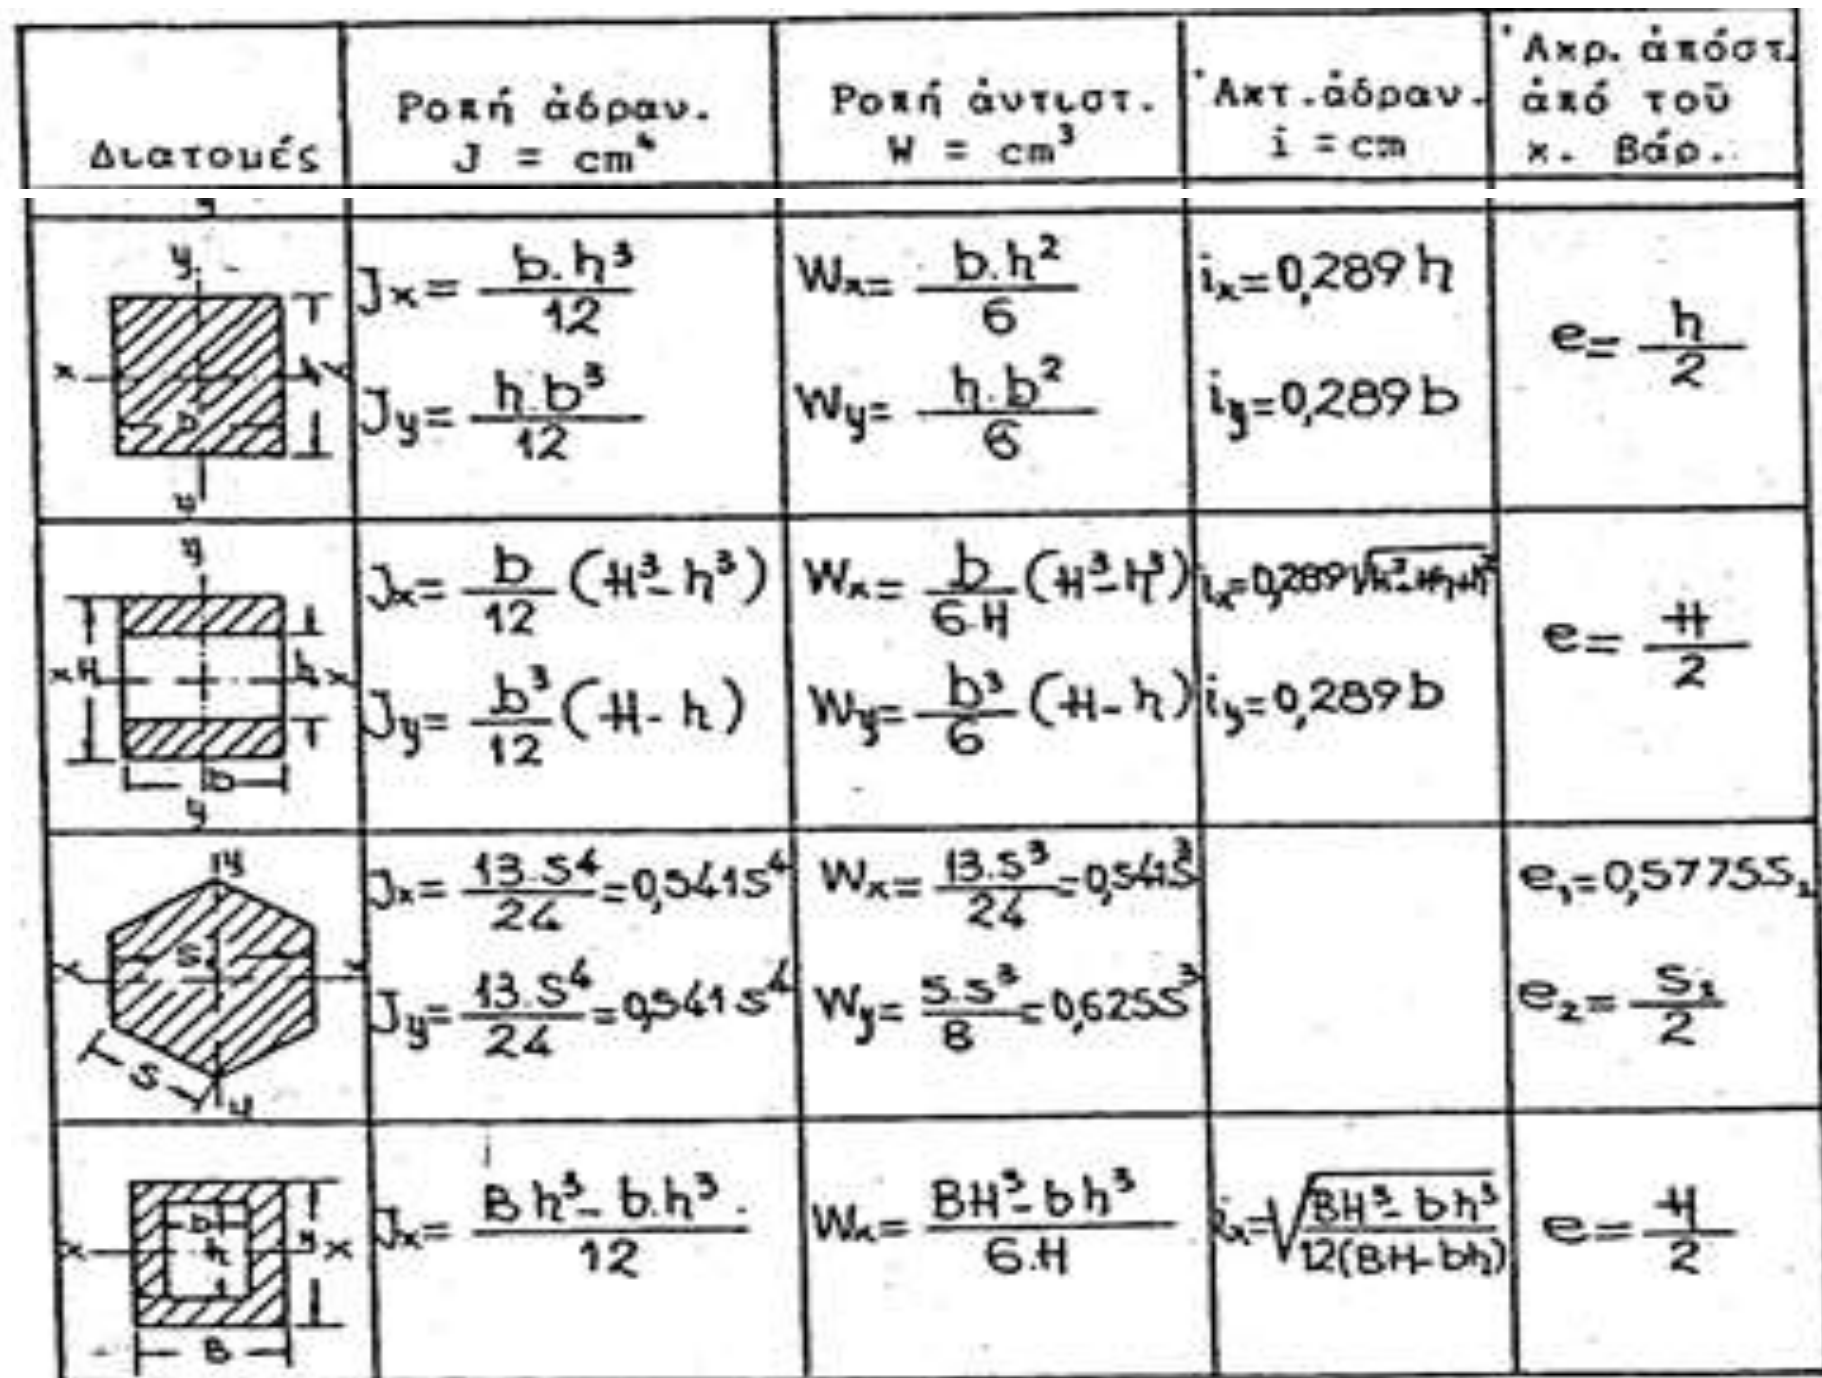 Διατομές
Ροπή ἀδραν.
J = cm⁴
Ροπή ἀντιστ.
W = cm³
Ἀκτ. ἀδραν.
i = cm
Ἀκρ. ἀπόστ.
ἀπό τοῦ
κ. βάρ.
y
y
x
x
h
b
y
Jx = b.h³/12
Jy = h.b³/12
Wx = b.h²/6
Wy = h.b²/6
ix = 0,289 h
iy = 0,289 b
e = h/2
y
x H
h x
b
y
Jx = b/12 (H³ - h³)
Jy = b³/12 (H - h)
Wx = b/6.H (H³ - h³)
Wy = b³/6 (H - h)
iy = 0,289 b
e = H/2
y
x
x
S
y
Jx = 13.S⁴/24 = 0,541S⁴
Jy = 13.S⁴/24 = 0,541S⁴
Wx = 13.S³/24 = 0,541S³
Wy = 5.S³/8 = 0,625S³
e₁ = 0,5775S₁
e₂ = S₁/2
x
b
h
H
x
B
Jx = Bh³ - b.h³/12
Wx = BH³ - bh³/6.H
ix = √BH³ - bh³/12(BH - bh)
e = H/2